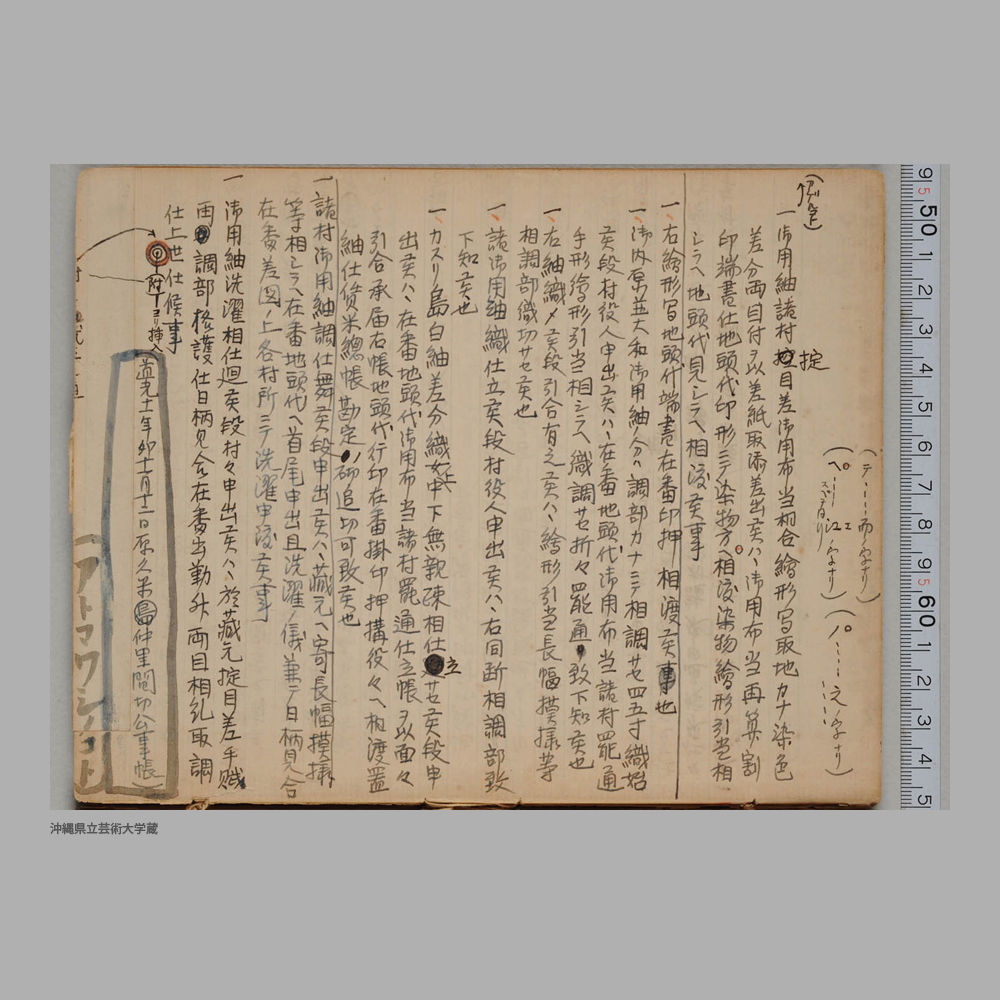 一御用紬諸村掟目差御用布当相合繪形写取地カナ染色
差分両目付ヲ以差紙取添差出候ハ、御用布当再算割
印端書仕地頭代印形ニテ染物方ヘ相渡染物繪形引当相
シラヘ地頭代見シラヘ相渡候事
一右繪形写地頭代端書在番印押相渡候事也
一御内原並大和御用紬分ハ調部カナニテ相調サセ四五寸織始
候段村役人申出候ハ、在番地頭代御用布当諸村罷通
手形繪形引当相シラヘ織調サセ折々罷通致下知候也
一右紬織〆候段引合有之候ハ、繪形引当長幅摸様等
相調部織切サセ候也
一諸御用紬織仕立候段村役人申出候ハ、右同断相調部致
下知候也
一カスリ島白紬差分織女上中下無親疎相仕立サセ候段申
出候ハ、在番地頭代御用布当諸村罷通仕立帳ヲ以面々
引合承届右帳地頭代行印在番掛印押構役々ヘ相渡置
紬仕賃米總帳勘定ノ砌追切可致候也
一諸村御用紬調仕舞候段申出候ハ、藏元ヘ寄長幅摸様
等相シラヘ在番地頭代ヘ首尾申出且洗濯ノ儀兼テ日柄見合
在番差図ノ上各村所ニテ洗濯申渡候事
一御用紬洗濯相仕廻候段村々申出候ハ、於藏元掟目差手賦
両調部格護仕日柄見合在番出勤ニ而両目相糺取調
仕上世仕候事
(附一ヨリ挿入
道光十一年卯十二月十二日原久米島仲里間切公事帳)
(アトマワシノコト
掟
(テ……而ノ字ナリ)
(ヘ……江ノ字ナリ)
(ハ……之ノ字ナリ)
9 50 1 2 3 4 5 6 7 8 9 60 1 2 3 4 5
沖縄県立芸術大学蔵